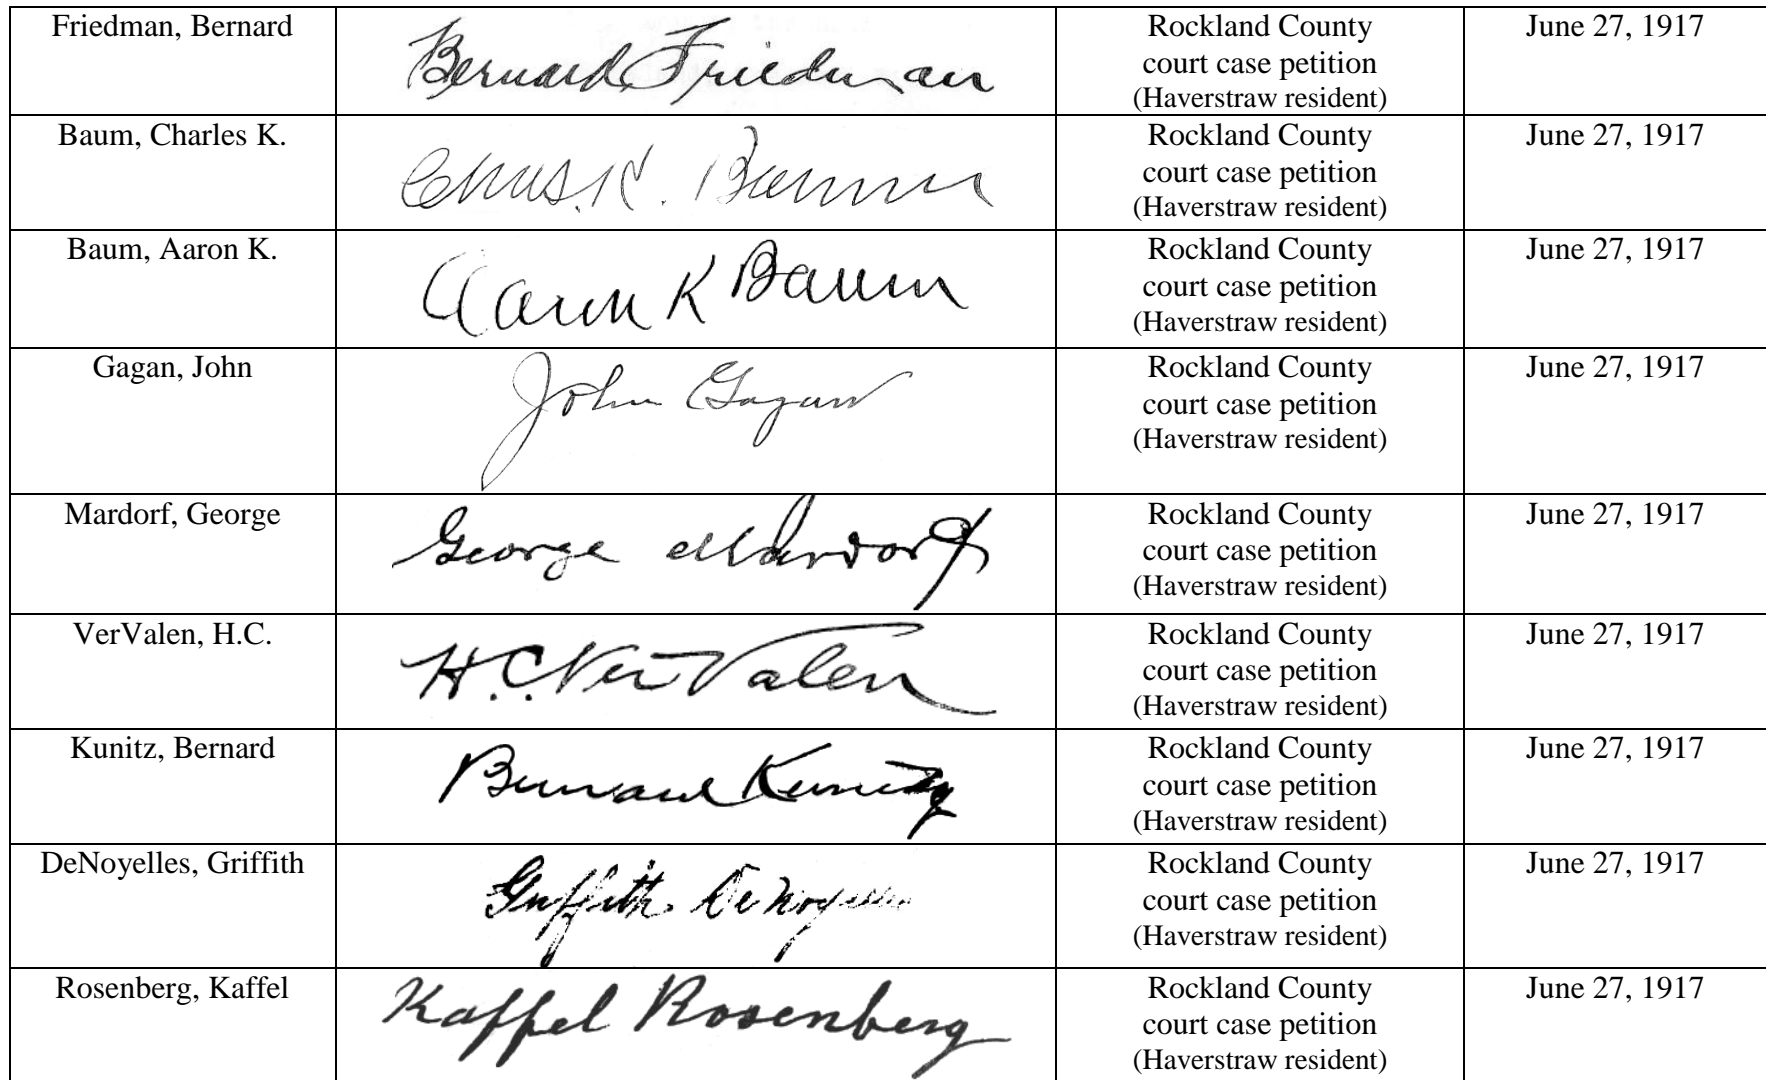 Friedman, Bernard
Bernard Friedman
Rockland County
court case petition
(Haverstraw resident)
June 27, 1917
Baum, Charles K.
Chas. K. Baum
Rockland County
court case petition
(Haverstraw resident)
June 27, 1917
Baum, Aaron K.
Aaron K Baum
Rockland County
court case petition
(Haverstraw resident)
June 27, 1917
Gagan, John
John Gagan
Rockland County
court case petition
(Haverstraw resident)
June 27, 1917
Mardorf, George
George Mardorf
Rockland County
court case petition
(Haverstraw resident)
June 27, 1917
VerValen, H.C.
H.C. VerValen
Rockland County
court case petition
(Haverstraw resident)
June 27, 1917
Kunitz, Bernard
Bernard Kunitz
Rockland County
court case petition
(Haverstraw resident)
June 27, 1917
DeNoyelles, Griffith
Griffith DeNoyelles
Rockland County
court case petition
(Haverstraw resident)
June 27, 1917
Rosenberg, Kaffel
Kaffel Rosenberg
Rockland County
court case petition
(Haverstraw resident)
June 27, 1917